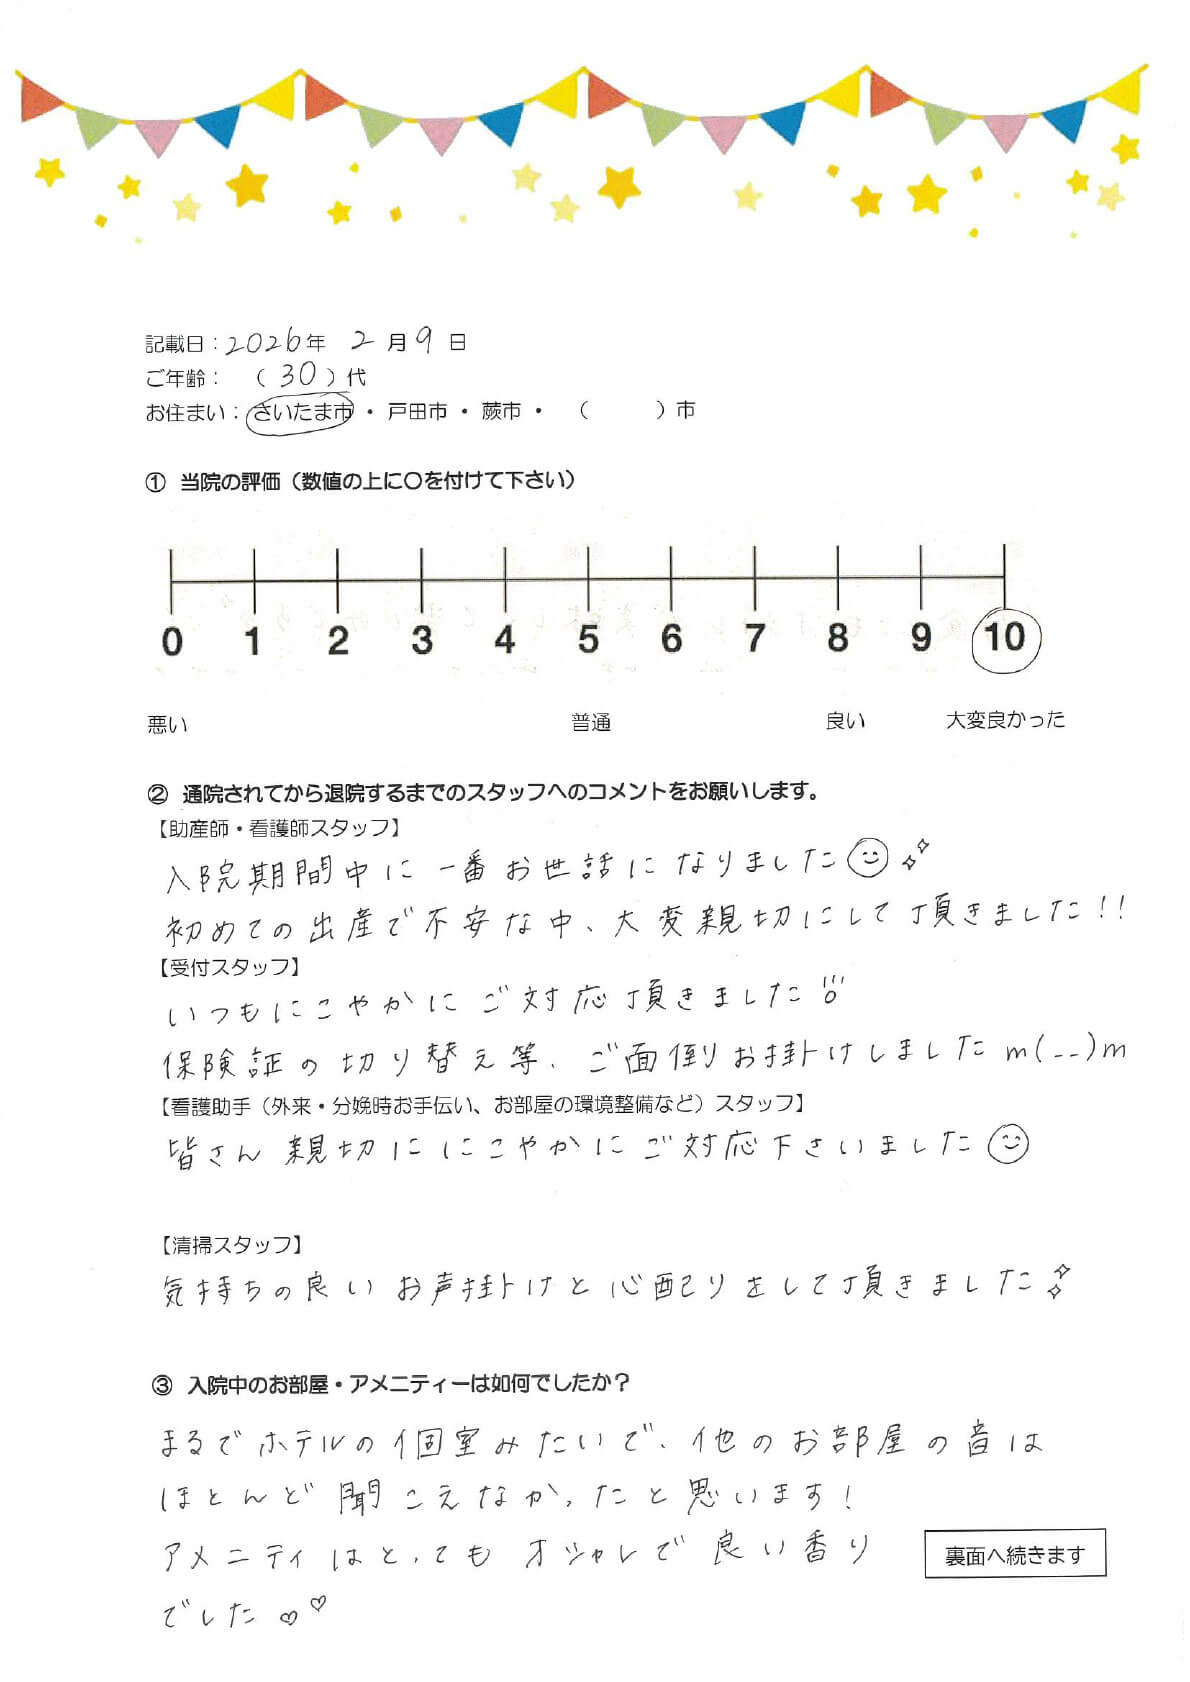 記載日：2026年 2月9日
ご年齢：　（30）代
お住まい：さいたま市・戸田市・蕨市・　（　　　）市
①　当院の評価（数値の上に〇を付けて下さい）
0 1 2 3 4 5 6 7 8 9 10
悪い　普通　良い　大変良かった
②　通院されてから退院するまでのスタッフへのコメントをお願いします。
【助産師・看護師スタッフ】
入院期間中に一番お世話になりました
初めての出産で不安な中、大変親切にして頂きました!!
【受付スタッフ】
いつもにこやかにご対応頂きました
保険証の切り替え等、ご面倒お掛けしましたm(__)m
【看護助手（外来・分娩時お手伝い、お部屋の環境整備など）スタッフ】
皆さん親切ににこやかにご対応下さいました
【清掃スタッフ】
気持ちの良いお声掛けと心配りをして頂きました
③　入院中のお部屋・アメニティーは如何でしたか？
まるでホテルの個室みたいで、他のお部屋の音は
ほとんど聞こえなかったと思います!
アメニティはとってもオシャレで良い香り
でした♡♡
裏面へ続きます